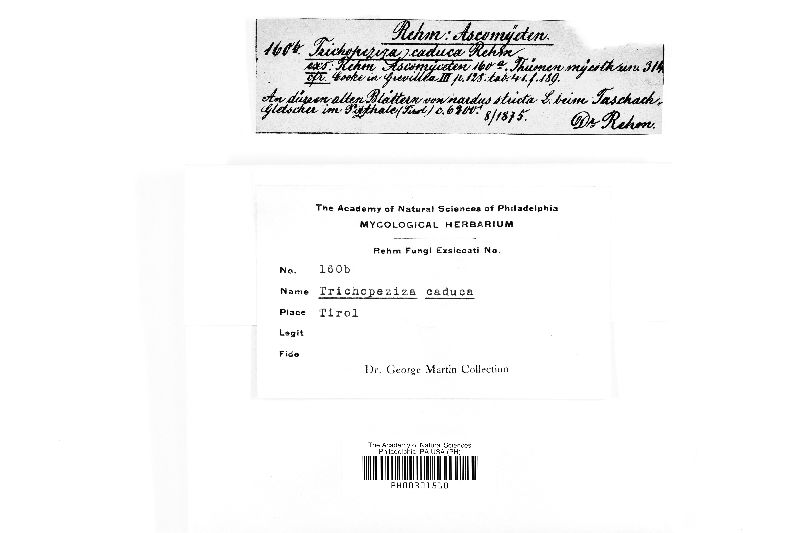 Rehm: Ascomyceten.
160b. Trichopeziza caduca Rehm
exs: Rehm Ascomyceten 160a. Thümen mycoth. un. 314
cfr. Cooke in Grevillea III p. 128. tab. 41. f. 180.
An dürren alten Blättern von nardus stricta L. beim Taschach-
Gletscher im Pitzthale (Tirol) c. 6200' 8/1875.
Dr Rehm.
The Academy of Natural Sciences of Philadelphia
MYCOLOGICAL HERBARIUM
Rehm Fungi Exsiccati No.
No. 160b
Name Trichopeziza caduca
Place Tirol
Legit
Fide
Dr. George Martin Collection
The Academy of Natural Sciences
Philadelphia, PA USA (PH)